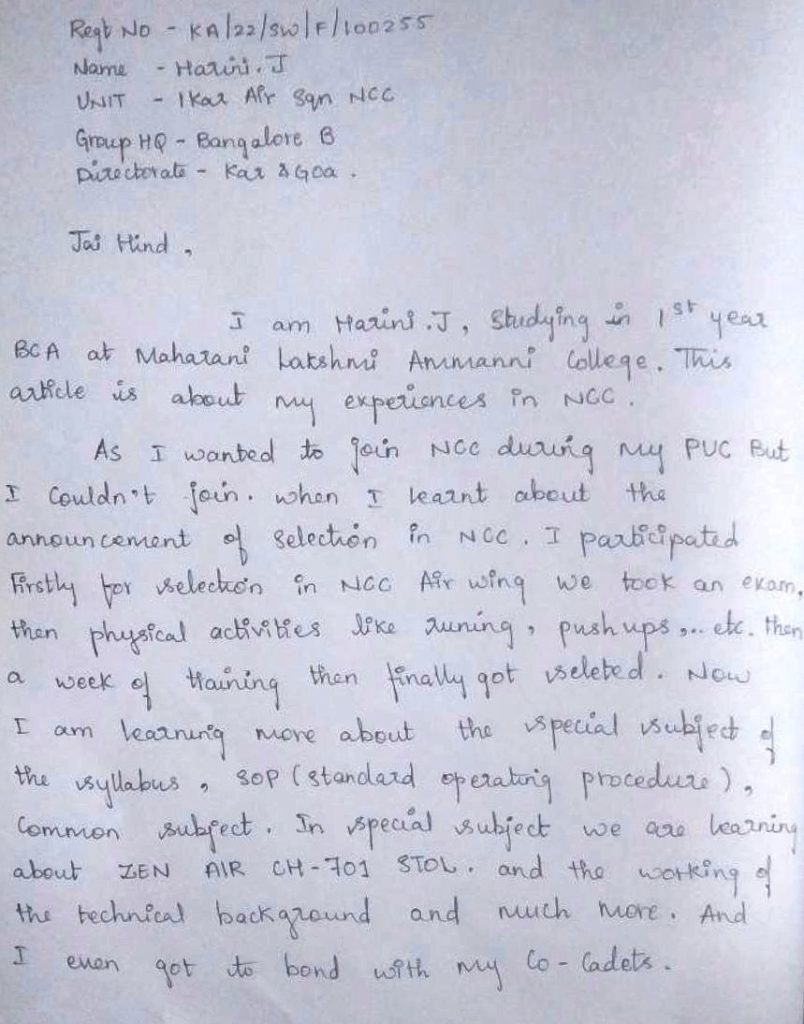 Regt No - KA/22/SW/F/100255
Name - Harini.J
UNIT - 1 Kar Air Sqn NCC
Group HQ - Bangalore B
Directorate - Kar & Goa .
Jai Hind ,
I am Harini .J, Studying in 1st year
BCA at Maharani Lakshmi Ammanni College. This
article is about my experiences in NCC.
As I wanted to join NCC during my PUC But
I Couldn't join. when I learnt about the
announcement of selection in NCC. I participated
Firstly for selection in NCC Air wing we took an exam,
then physical activities like runing, push ups ,.. etc. then
a week of training then finally got seleted. Now
I am learning more about the special subject of
the syllabus, SOP (standard operating procedure),
Common subject. In special subject we are learning
about ZEN AIR CH-701 STOL. and the working of
the technical background and much more. And
I even got to bond with my Co-Cadets.